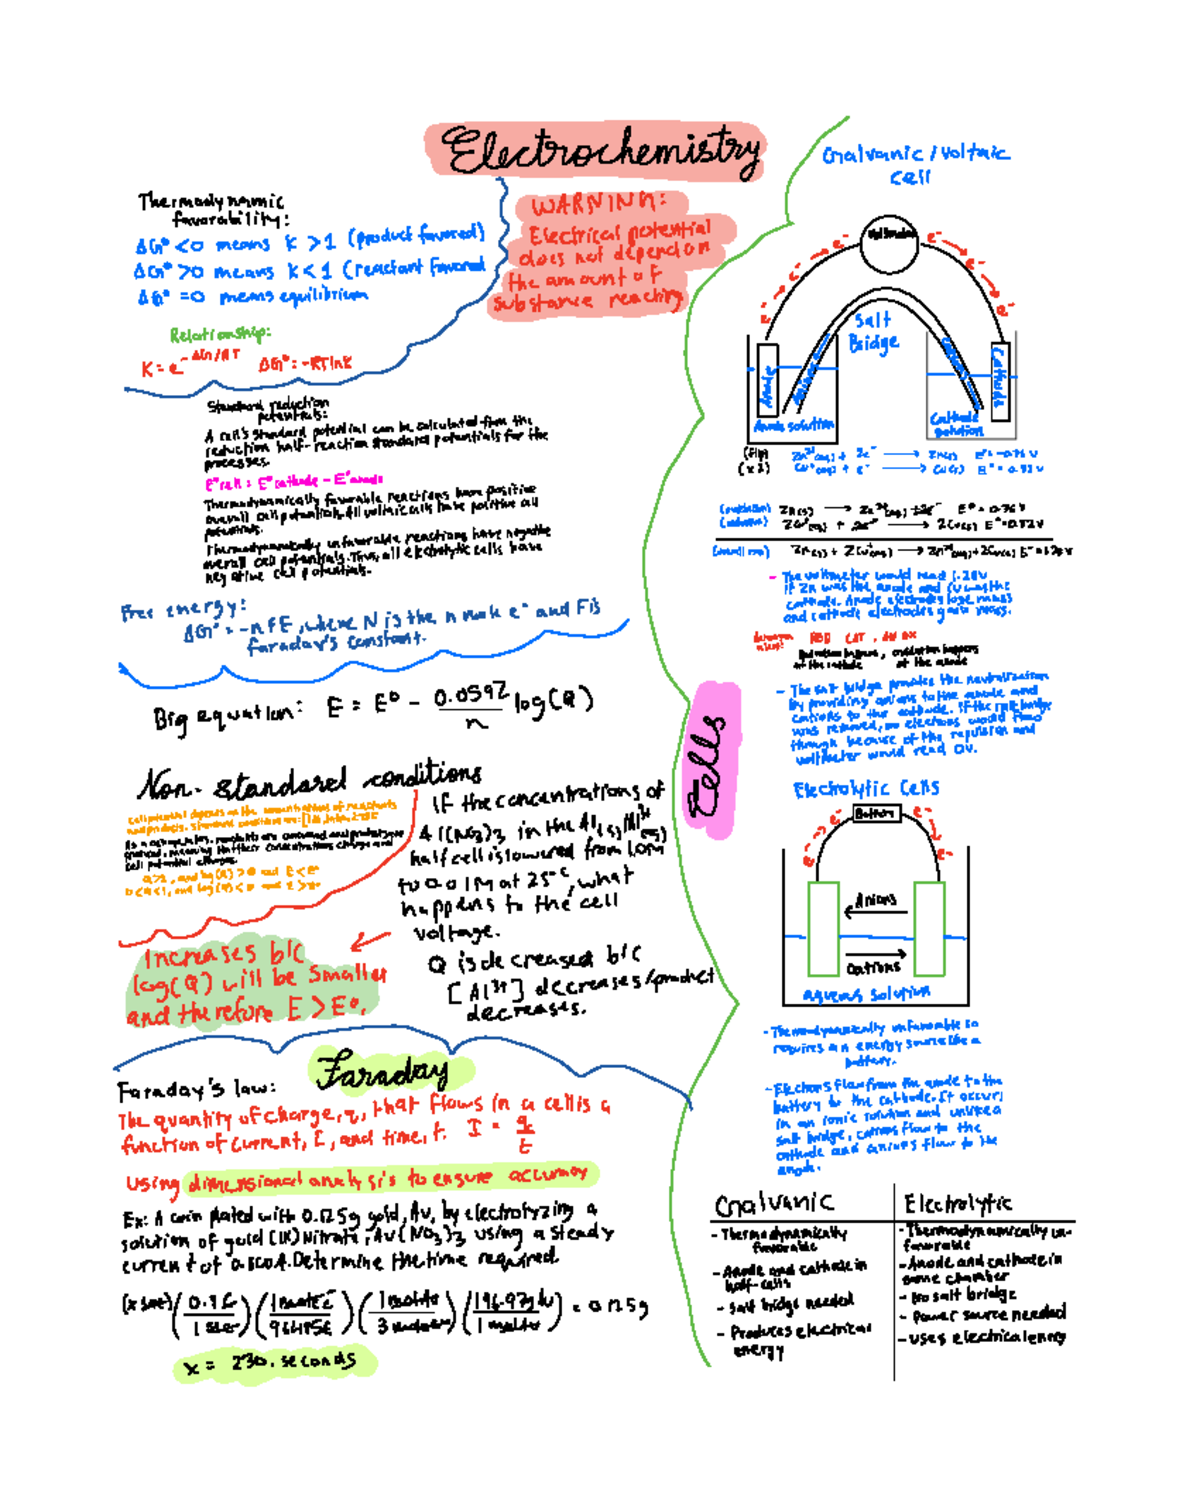 Electrochemistry
Thermodynamic
favorability:
ΔG° < 0 means K > 1 (product favored)
ΔG° > 0 means K < 1 (reactant favored
ΔG° = 0 means equilibrium
Relationship:
K = e^-ΔG/RT ΔG° = -RTlnK
WARNING:
Electrical potential
does not depend on
the amount of
substance reacting
Standard reduction
potentials:
A cell's standard potential can be calculated from the
reduction half-reaction standard potentials for the
processes.
E°cell = E°cathode - E°anode
Thermodynamically favorable reactions have positive
overall cell potentials. All voltaic cells have positive cell
potentials.
Thermodynamically unfavorable reactions have negative
overall cell potentials. Thus, all electrolytic cells have
negative cell potentials.
Free energy:
ΔG° = -nFE, where N is the n mole e⁻ and F is
faraday's constant.
Big equation: E = E° - 0.0592/n log(Q)
Non-standard conditions
Cell potential depends on the concentrations of reactants
and products.
cell potential changes.
If the concentrations of
Al(NO₃)₃ in the Al(s)/Al³⁺
half cell is lowered from 1.0M
to 0.01M at 25°C, what
happens to the cell
voltage.
Q is decreased b/c
[Al³⁺] decreases/product
decreases.
Increases b/c
log(Q) will be smaller
and therefore E > E°.
Faraday
Faraday's law:
The quantity of charge, q, that flows in a cell is a
function of current, I, and time, t. I = q/t
Using dimensional analysis to ensure accuracy
Ex: A coin plated with 0.125g gold, Au, by electrolyzing a
solution of gold (III) Nitrate, Au(NO₃)₃ using a steady
current of 0.800A. Determine the time required.
x = 230. seconds
Cells
Galvanic / Voltaic
cell
Voltmeter
e⁻ e⁻ e⁻ e⁻ e⁻
Salt
Bridge
Anode
Cathode
Anode solution
Cathode
solution
(flip) Zn²⁺(aq) + 2e⁻ → Zn(s) E° = -0.76 V
(x2)
- The voltmeter would read 1.28V
if Zn was the anode and Cu was the
cathode. Anode electrodes lose mass
and cathode electrodes gain mass.
RED CAT, AN OX
Reduction happens, oxidation happens
at the cathode at the anode
- The salt bridge provides the neutralization
by providing anions to the anode and
cations to the cathode. If the salt bridge
was removed, no electrons would flow
through because of the repulsion and
voltmeter would read 0V.
Electrolytic Cells
Battery
e⁻ e⁻ e⁻ e⁻
Anions
Cations
aqueous solution
- Thermodynamically unfavorable so
requires an energy source like a
battery.
- Electrons flow from the anode to the
battery to the cathode. It occurs
in an ionic solution and unlike a
salt bridge, cations flow to the
cathode and anions flow to the
anode.
Galvanic
- Thermodynamically
favorable
- Anode and cathode in
half-cells
- Salt bridge needed
- Produces electrical
energy
Electrolytic
- Thermodynamically un-
favorable
- Anode and cathode in
same chamber
- No salt bridge
- Power source needed
- Uses electrical energy